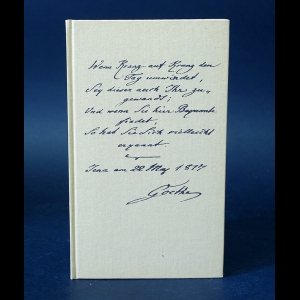 Wenn Kranz auf Kranz den
Tag umwindet,
Sey dieser auch Ihr zu-
gewandt;
Und wenn Sie hier Bekannte
findet,
So hat Sie Sich vielleicht
erkannt
Jena am 22 May 1817
Goethe